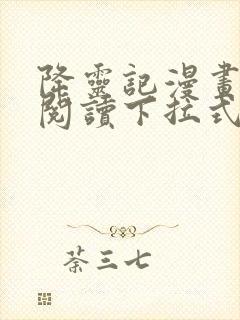 降靈記漫畫
閱讀下拉式
荼三七